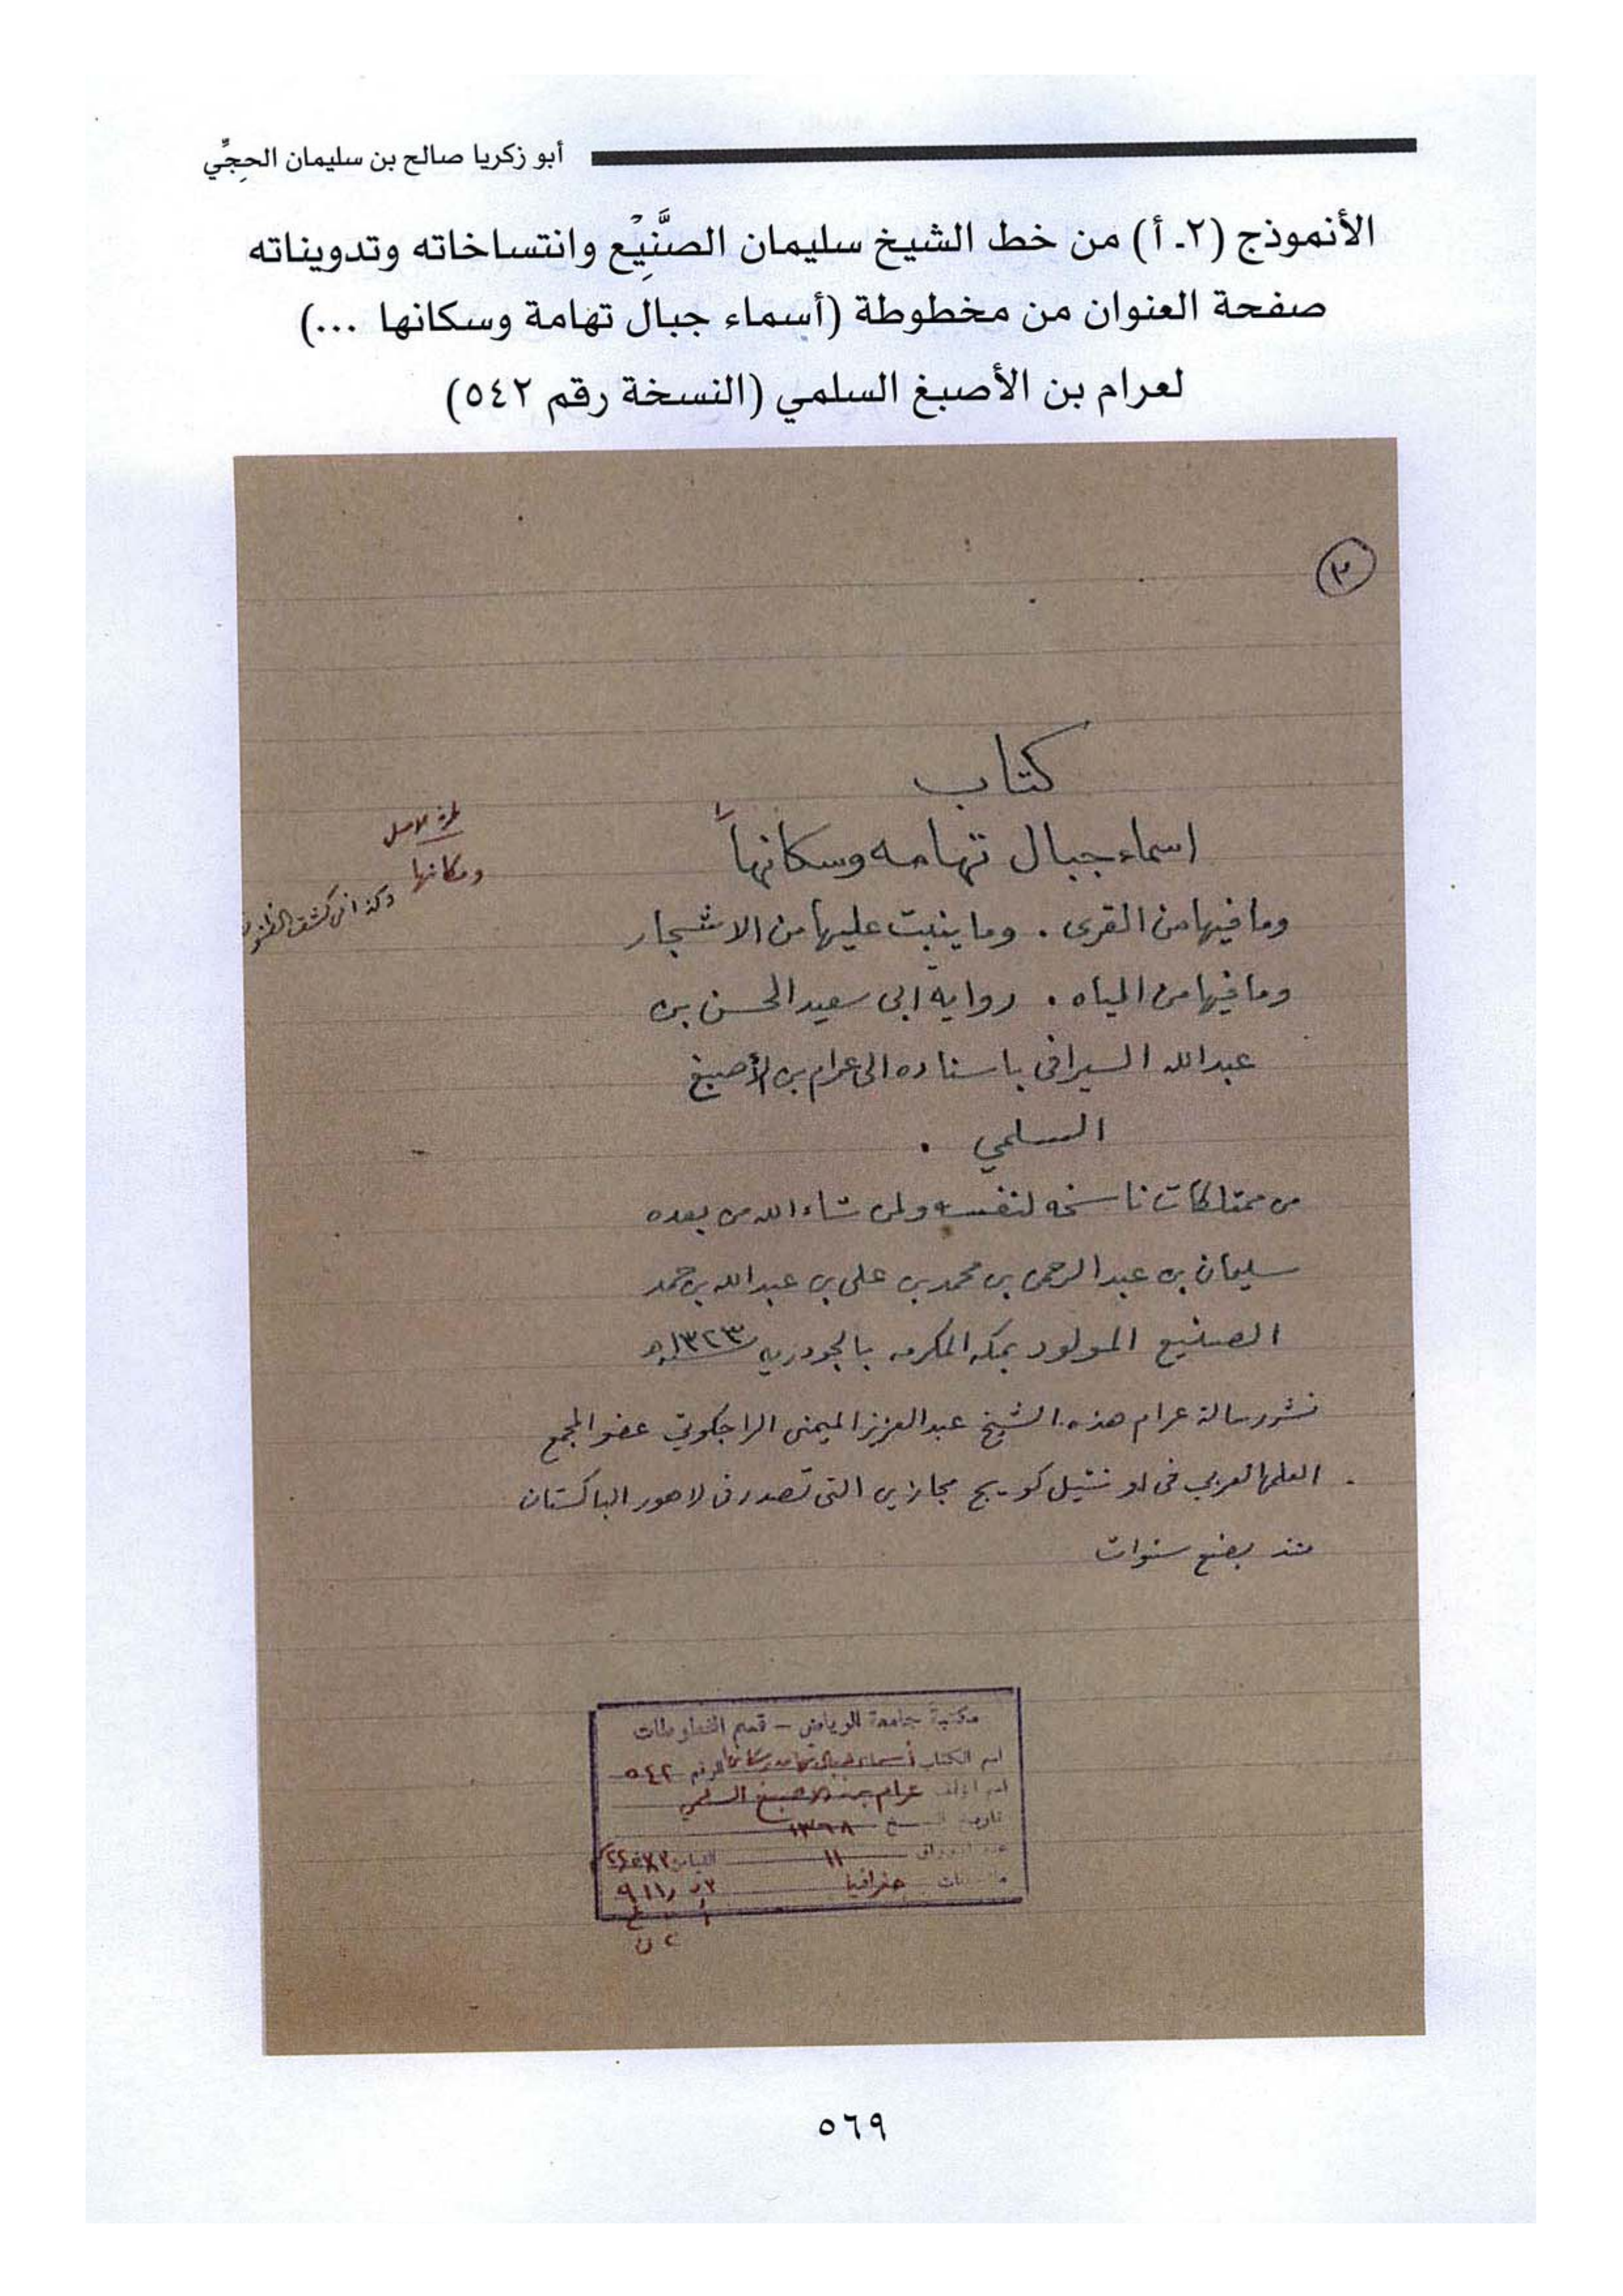 أبو زكريا صالح بن سليمان الحجِّي
الأنموذج (٢ـ أ) من خط الشيخ سليمان الصنَّيِعْ وانتساخاته وتدويناته
صفحة العنوان من مخطوطة (أسماء جبال تهامة وسكانها ...)
لعرام بن الأصبغ السلمي (النسخة رقم ٥٤٢)
كتاب
اسماء جبال تهامه وسكانها
الاصل
ومكانها
وكذا في كشف الظنون
وما فيها من القرى . وما ينبت عليها من الاشجار
وما فيها من المياه . رواية ابى سعيد الحسن بن
عبدالله السيرافى باسناده الى عرام بن الأصبغ
السلمي .
من ممتلكات ناسخه لنفسه ولمن شاء الله من بعده
سليمان بن عبدالرحمن بن محمد بن على بن عبدالله بن حمد
الصنيع المولود بمكه المكرمه بالجودريه ١٣٢٣هـ
نشر رسالة عرام هذه الشيخ عبدالعزيز الميمنى الراجكوتي عضو المجمع
العلمى العربي فى اونتيل كويج مجازين التى تصدر فى لاهور الباكستان
منذ بضع سنوات
مكتبة جامعة الرياض - قسم المخطوطات
اسم الكتاب أسماء جبال تهامه وسكانها الرقم ٥٤٢
اسم المؤلف عرام بن الاصبغ السلمي
تاريخ النسخ
عدد الاوراق ١١ القياس
جغرافيا
٥٦٩